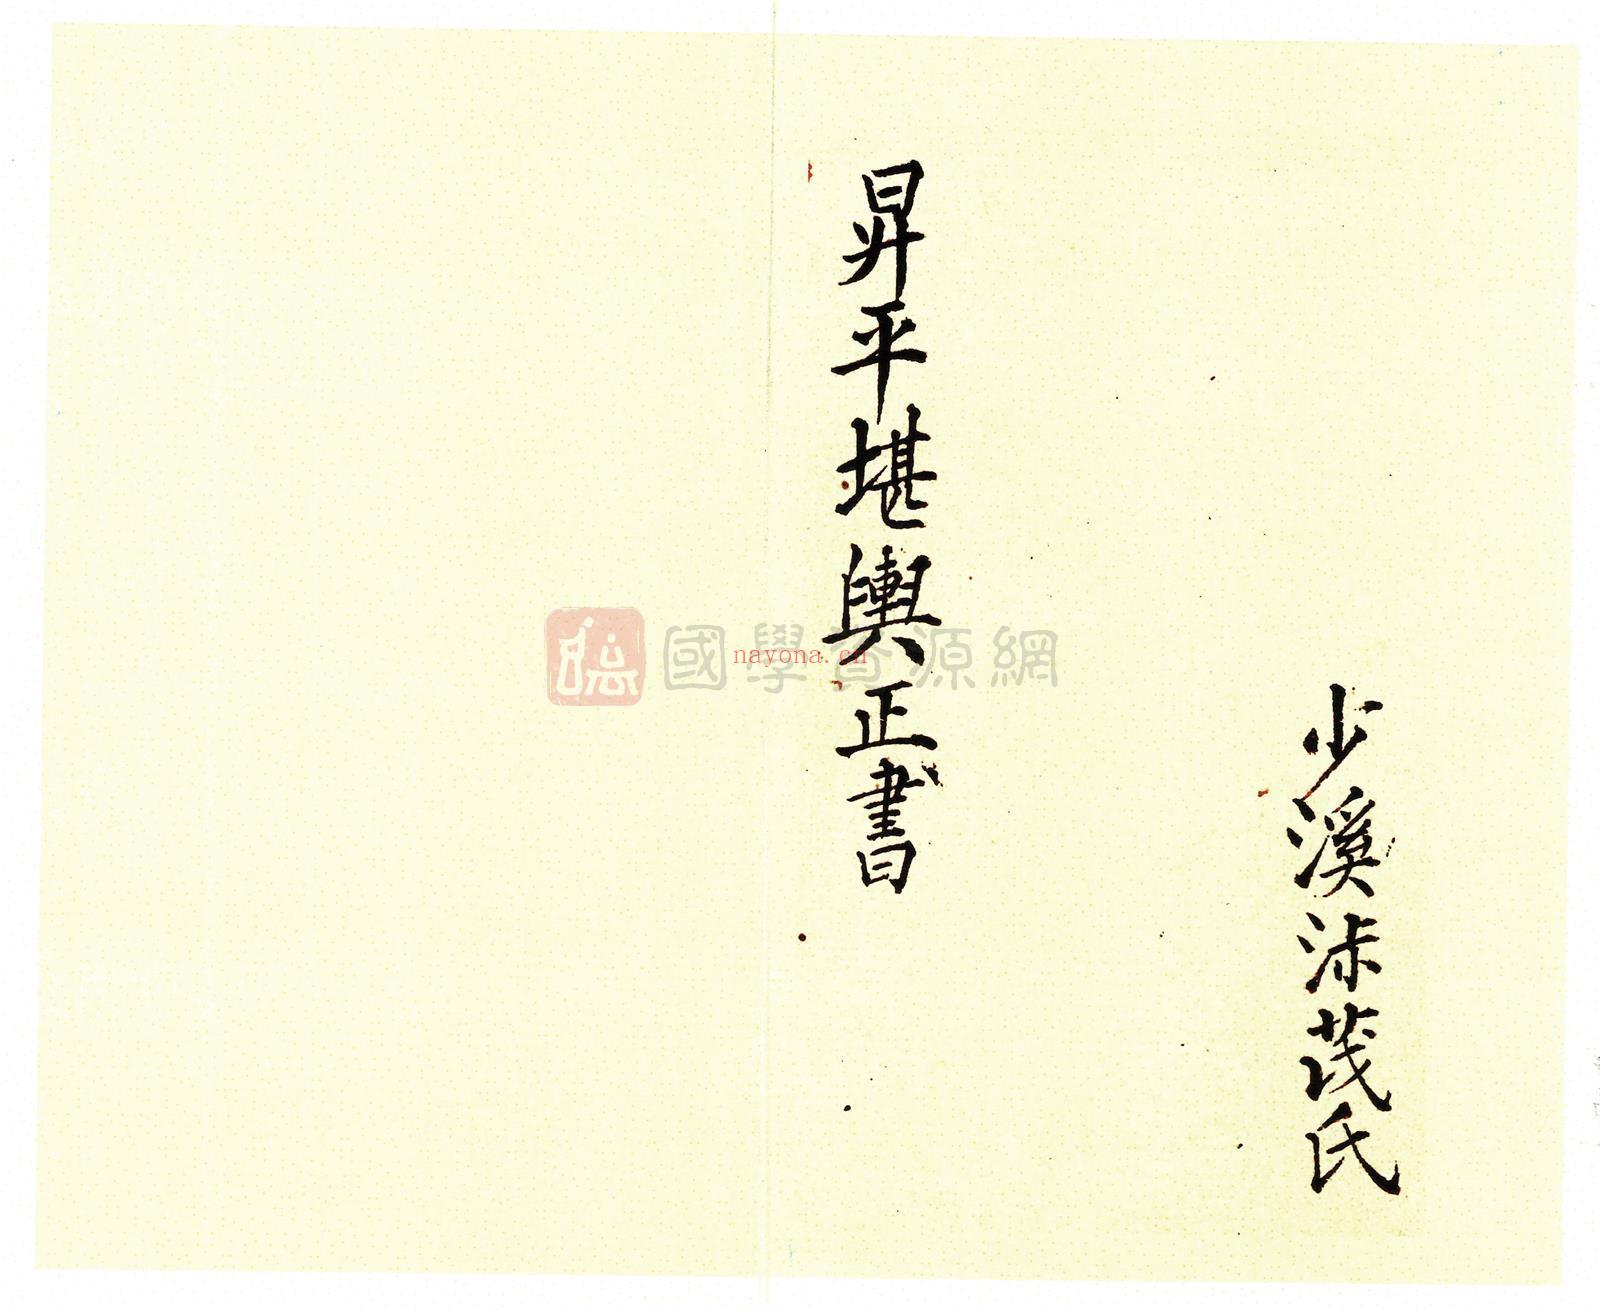 少溪沭茂氏
昇平堪輿正書
國學資源網
nayona.cn